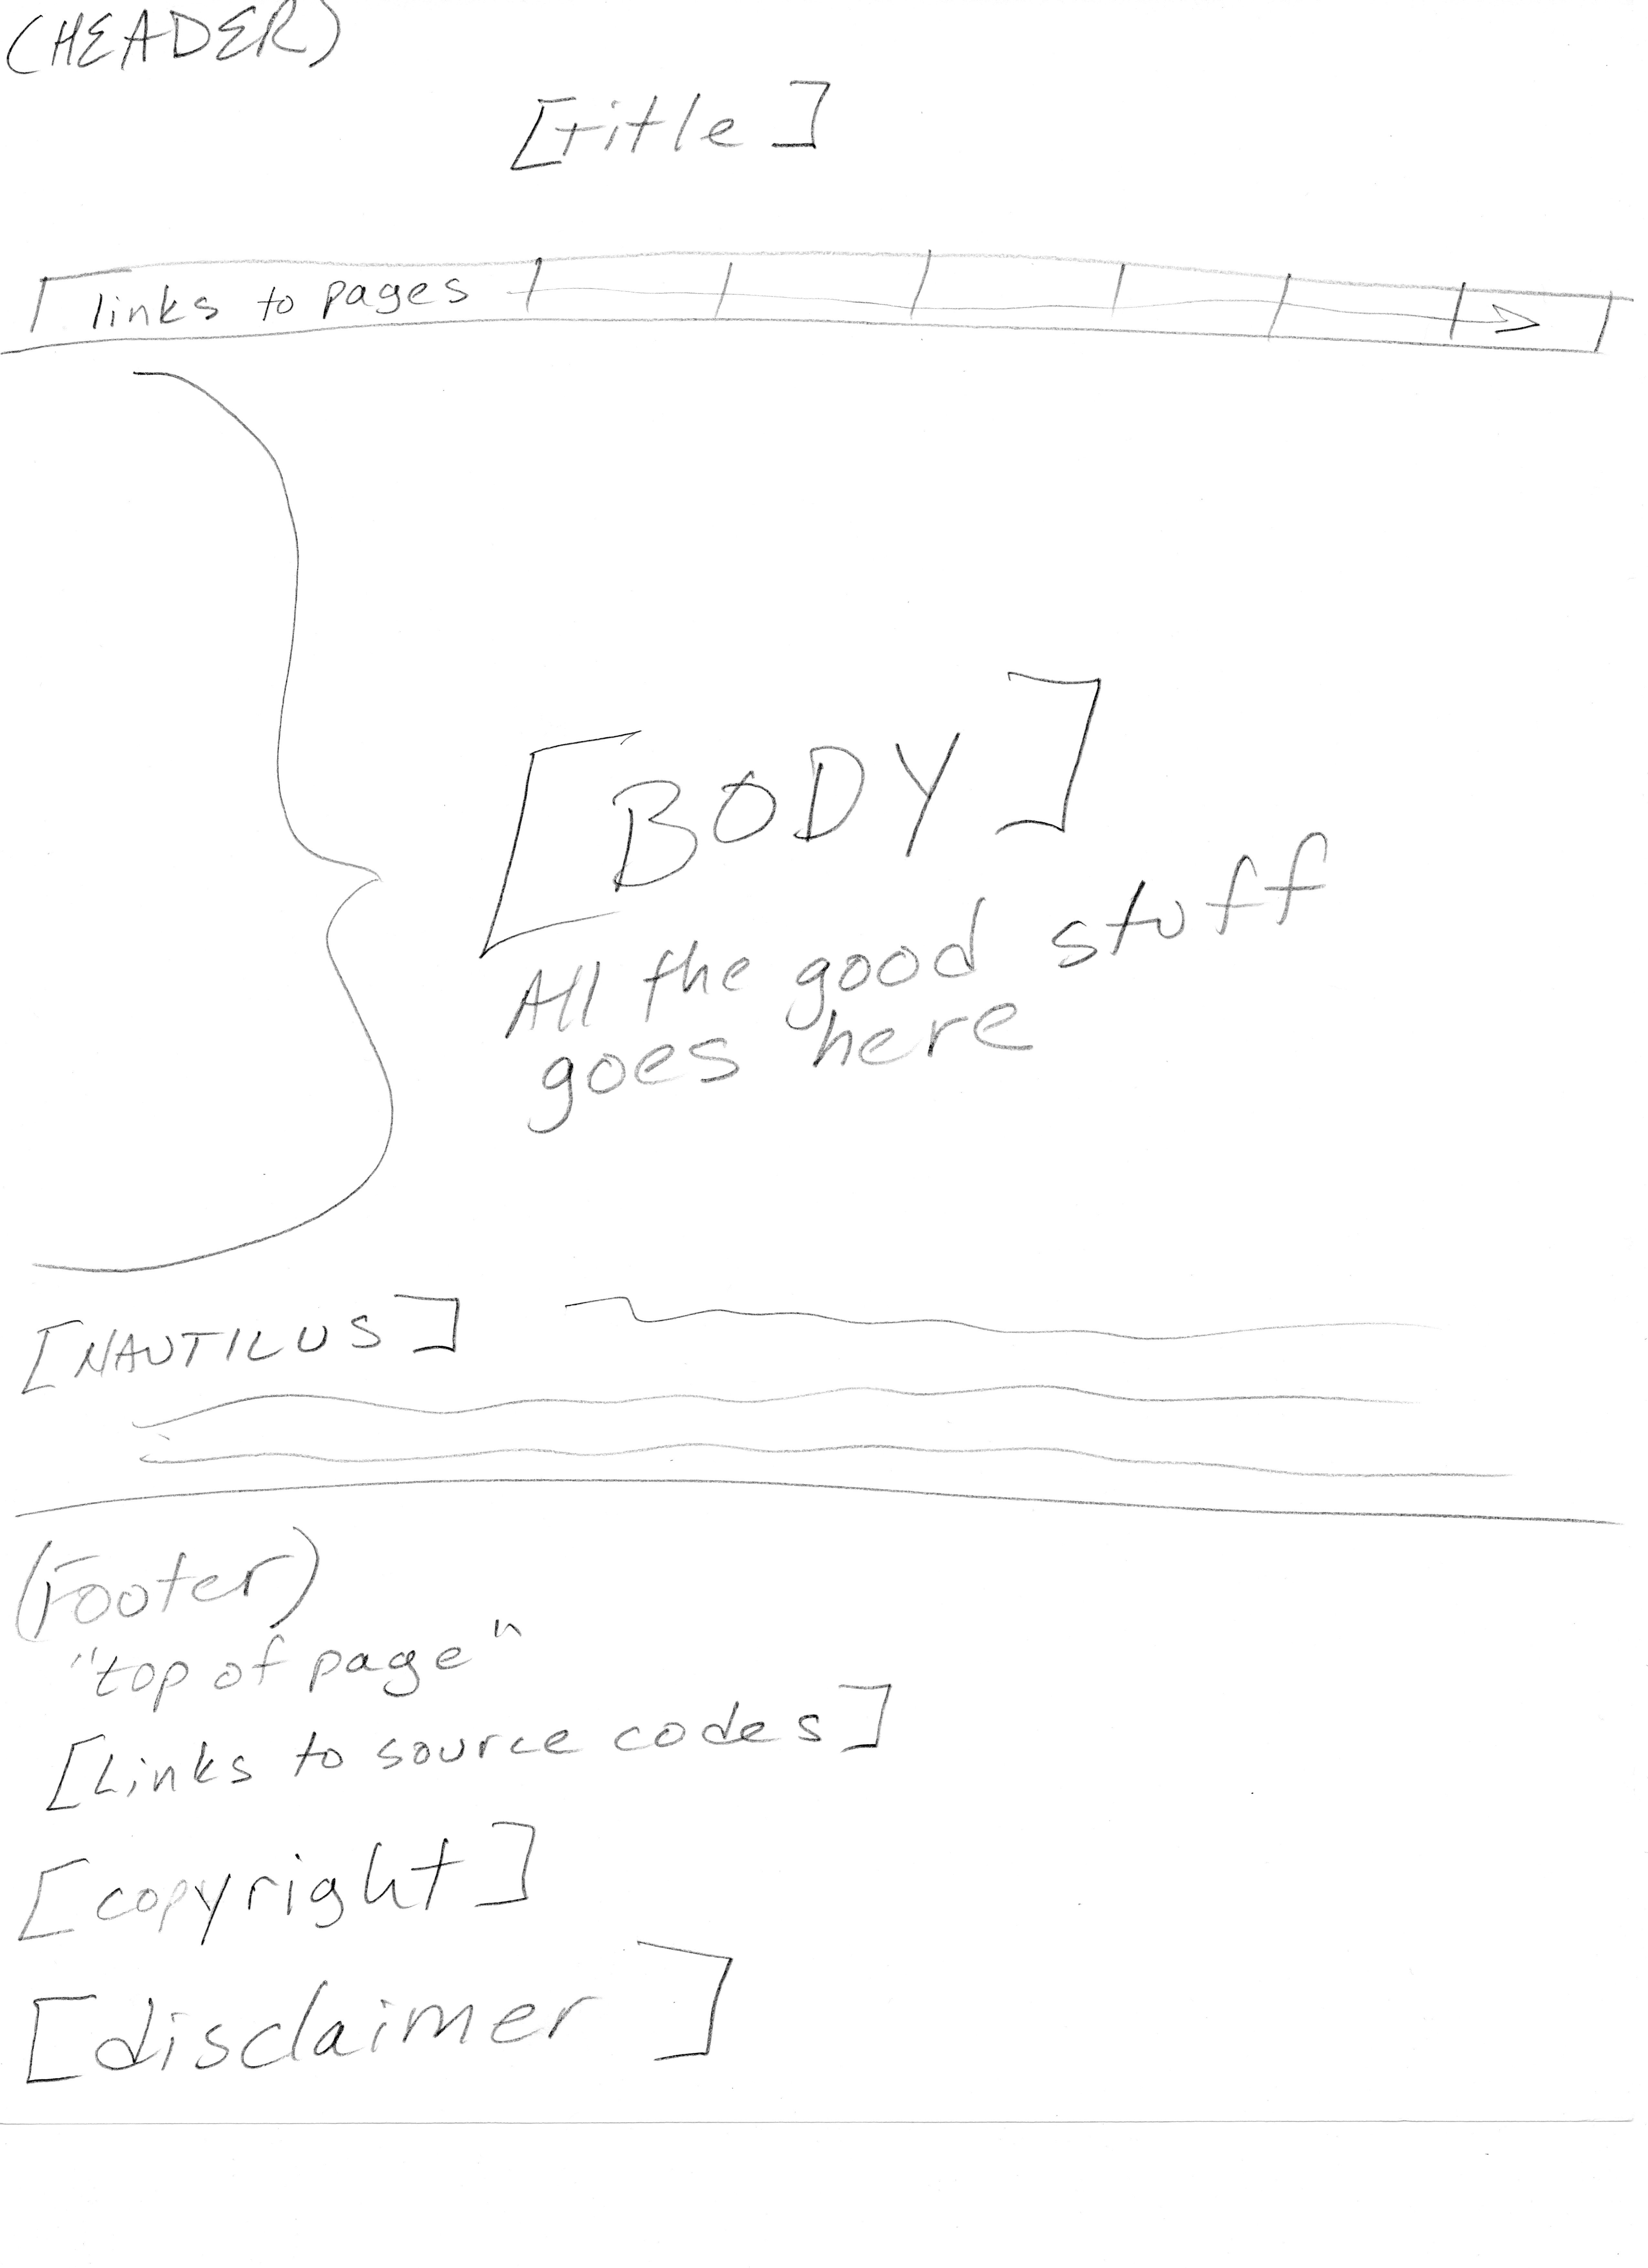 (HEADER)
[Title]
[links to pages
[BODY]
All the good stuff
goes here
[NAUTILUS]
(Footer)
"top of page"
[Links to source codes]
[copyright]
[disclaimer]